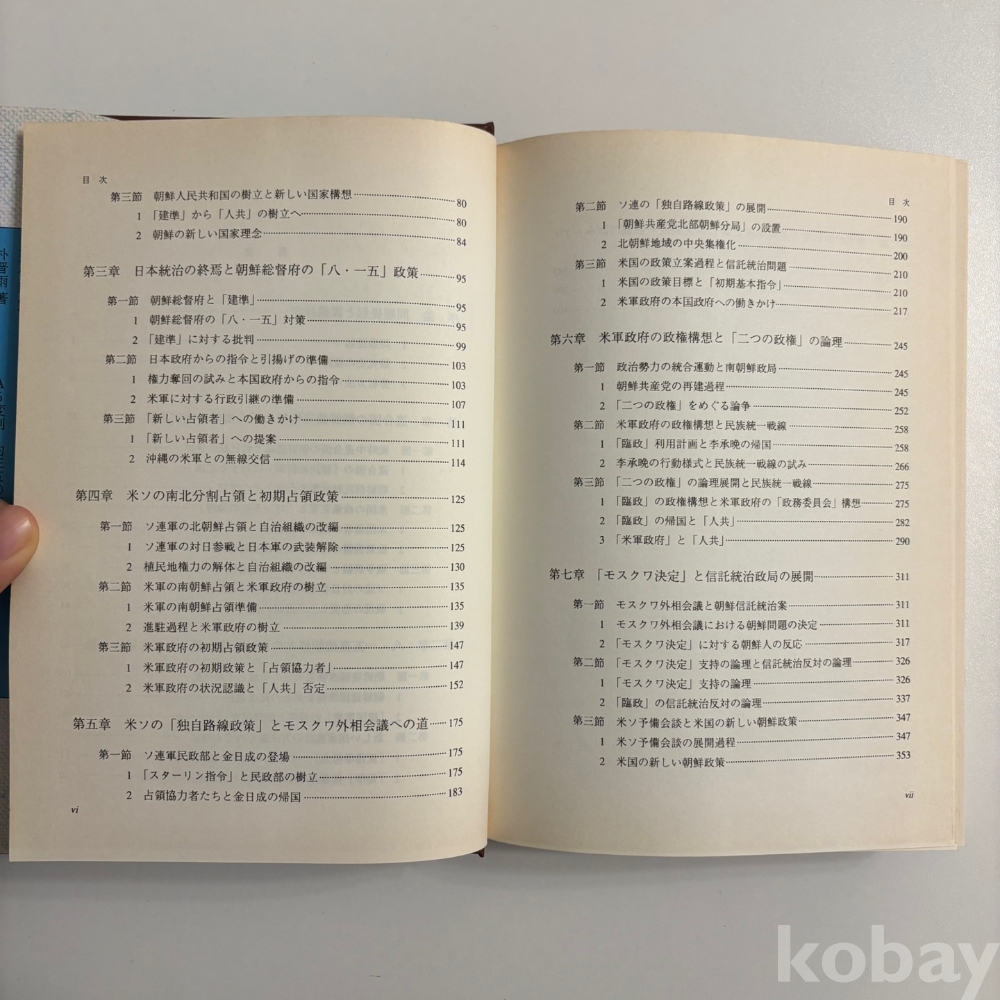 目 次
第三節 朝鮮人民共和国の樹立と新しい国家構想 80
1 「建準」から「人共」の樹立へ 80
2 朝鮮の新しい国家理念 84
第三章 日本統治の終焉と朝鮮総督府の「八・一五」政策 95
第一節 朝鮮総督府と「建準」 95
1 朝鮮総督府の「八・一五」対策 95
2 「建準」に対する批判 99
第二節 日本政府からの指令と引揚げの準備 103
1 権力奪回の試みと本国政府からの指令 103
2 米軍に対する行政引継の準備 107
第三節 「新しい占領者」への働きかけ 111
1 「新しい占領者」への提案 111
2 沖縄の米軍との無線交信 114
第四章 米ソの南北分割占領と初期占領政策 125
第一節 ソ連軍の北朝鮮占領と自治組織の改編 125
1 ソ連軍の対日参戦と日本軍の武装解除 125
2 植民地権力の解体と自治組織の改編 130
第二節 米軍の南朝鮮占領と米軍政府の樹立 135
1 米軍の南朝鮮占領準備 135
2 進駐過程と米軍政府の樹立 139
第三節 米軍政府の初期占領政策 147
1 米軍政府の初期政策と「占領協力者」 147
2 米軍政府の状況認識と「人共」否定 152
第五章 米ソの「独自路線政策」とモスクワ外相会議への道 175
第一節 ソ連軍民政部と金日成の登場 175
1 「スターリン指令」と民政部の樹立 175
2 占領協力者たちと金日成の帰国 183
vi
目 次
第二節 ソ連の「独自路線政策」の展開 190
1 「朝鮮共産党北部朝鮮分局」の設置 190
2 北朝鮮地域の中央集権化 200
第三節 米国の政策立案過程と信託統治問題 210
1 米国の政策目標と「初期基本指令」 210
2 米軍政府の本国政府への働きかけ 217
第六章 米軍政府の政権構想と「二つの政権」の論理 245
第一節 政治勢力の統合運動と南朝鮮政局 245
1 朝鮮共産党の再建過程 245
2 「二つの政権」をめぐる論争 252
第二節 米軍政府の政権構想と民族統一戦線 258
1 「臨政」利用計画と李承晩の帰国 258
2 李承晩の行動様式と民族統一戦線の試み 266
第三節 「二つの政権」の論理展開と民族統一戦線 275
1 「臨政」の政権構想と米軍政府の「政務委員会」構想 275
2 「臨政」の帰国と「人共」 282
3 「米軍政府」と「人共」 290
第七章 「モスクワ決定」と信託統治政局の展開 311
第一節 モスクワ外相会議と朝鮮信託統治案 311
1 モスクワ外相会議における朝鮮問題の決定 311
2 「モスクワ決定」に対する朝鮮人の反応 317
第二節 「モスクワ決定」支持の論理と信託統治反対の論理 326
1 「モスクワ決定」支持の論理 326
2 「臨政」の信託統治反対の論理 337
第三節 米ソ予備会談と米国の新しい朝鮮政策 347
1 米ソ予備会談の展開過程 347
2 米国の新しい朝鮮政策 353
vii
kobay